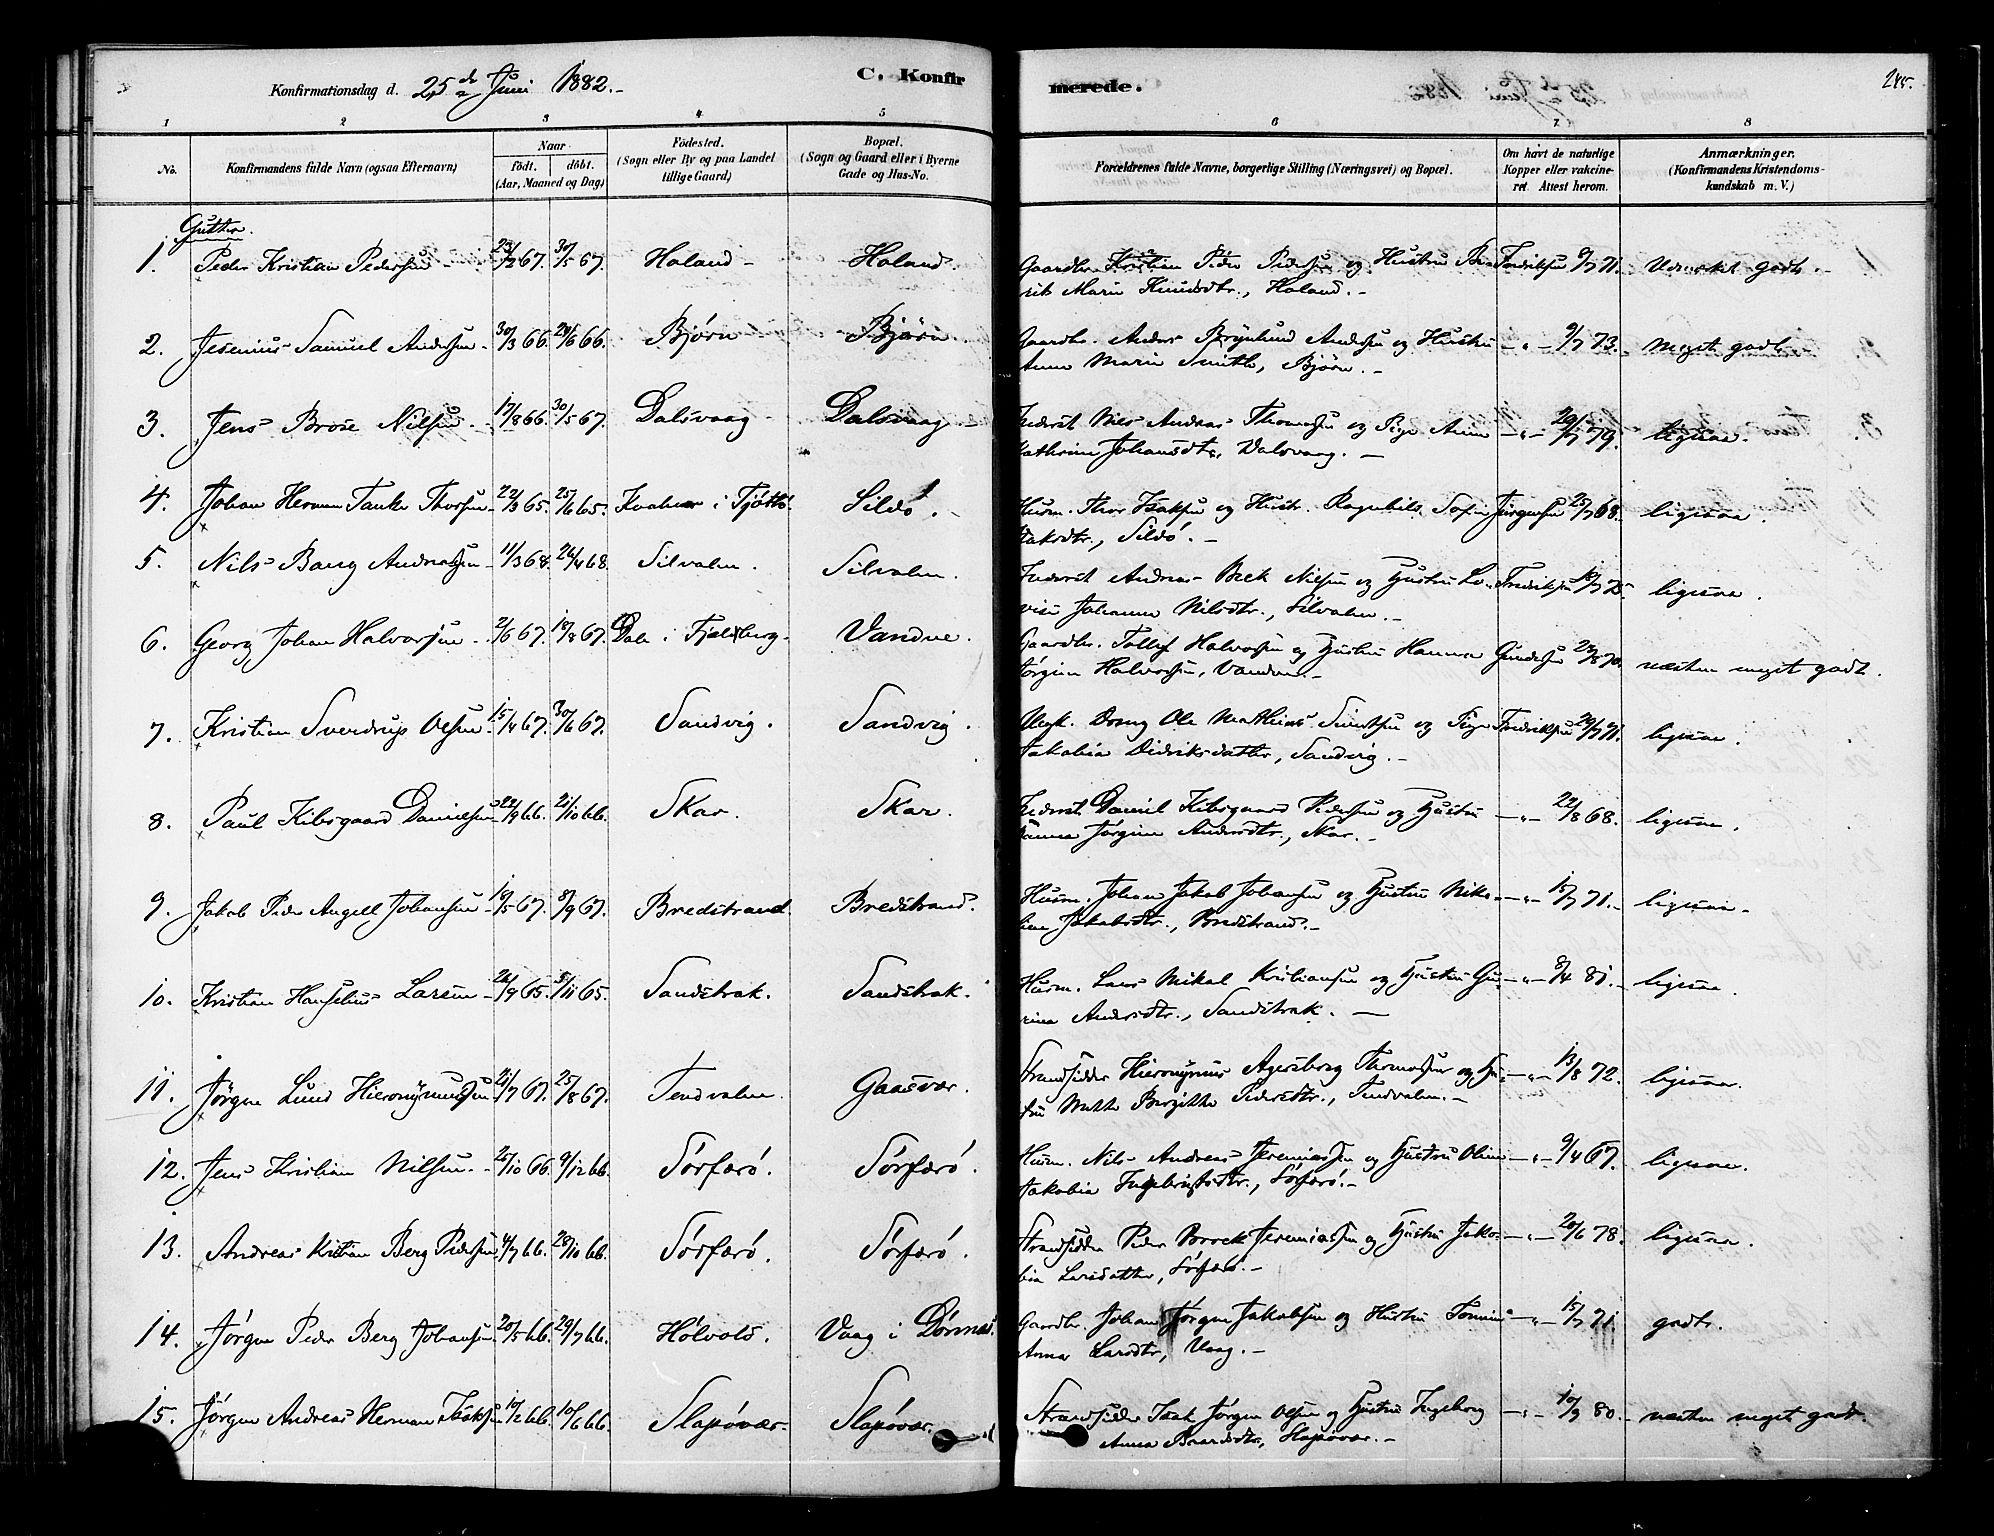 Konfirmationsdag d. 25de Juni 1882.
C. Konfirmerede.
245.
1 2 3 4 5 6 7 8
No.
Konfirmandens fulde Navn (ogsaa Efternavn)
Naar
født. døbt.
(Aar, Maaned og Dag)
Fødested.
(Sogn eller By og paa Landet
tillige Gaard)
Bopæl.
(Sogn og Gaard eller i Byerne
Gade og Hus-No.
Forældrenes fulde Navne, borgerlige Stilling (Næringsvei) og Bopæl.
Om havt de naturlige
Kopper eller vakcine-
ret. Attest herom.
Anmærkninger.
(Konfirmandens Kristendoms-
kundskab m. V.)
Gutter.
1. Peder Kristian Pedersen 67. 30/5 67. Haland Haland Gaardbr. Peder Pedersen og Hustru Be- Fredriksen 9/7 71. Udmærket godt.
rit Marie Knudsdtr., Haland.
2. Jesenius Samuel Andersen 30/3 66. 29/6 66. Bjørn Bjørn Gaardbr. Anders Brynlund Andersen og Hustru 9/7 73. meget godt.
Anne Marie Smith, Bjørn.
3. Jens Brose Nilsen 17/8 66. 30/5 67. Dalsvaag Dalsvaag Inderst Nils Andreas Thomassen og Pige Anne 79. ligesaa.
Kathrine Johansdtr., Dalsvaag.
4. Johan Herman Tanke Thorsen 22/3 65. 25/6 65. i Tjøttø Sildø. Husm. Thor Isaksen og Hustr. Ragnhild Sofie Jürgensen 68. ligesaa.
Isaksdtr., Sildø.
5. Nils Bang Andreassen 11/3 68. 26/4 68. Silvalen. Silvalen. Inderst Andreas Beck Nilsen og Hustru Lo- Fredriksen 75. ligesaa.
vise Johanna Nilsdtr., Silvalen.
6. Georg Johan Halvorsen 2/6 67. 18/8 67. Dale i Fjeldberg. Vandve. Gaardbr. Tollef Halvorsen og Hustru Hanna Gundersen 70. næsten meget godt.
Jørgine Halvorsen, Vandve.
7. Kristian Sverdrup Olsen 15/4 67. 30/6 67. Sandvig. Sandvig. Ugk. Dreng Ole Mathias Simonsen og Pige Fredriksen 29/7 71. ligesaa.
Jakobia Didriksdatter, Sandvig.
8. Paul Kibsgaard Danielsen 22/9 66. 21/10 66. Skar. Skar. Inderst Daniel Kibsgaard Pedersen og Hustru 22/8 68. ligesaa.
Jørgine Andersdtr., Skar.
9. Jakob Peder Angell Johansen 19/5 67. 8/9 67. Bredstrand. Bredstrand. Husm. Johan Jakob Johansen og Hustru Niko- 15/7 71. ligesaa.
line Jakobsdtr., Bredstrand.
10. Kristian Hanselius Larsen 24/9 65. 5/11 65. Sandstrak. Sandstrak. Husm. Lars Mikal Kristiansen og Hustru Gu- 8/4 81. ligesaa.
rine Andersdtr., Sandstrak.
11. Jørgen Lund Hieronymussen 21/7 67. 25/8 67. Tendvalen. Gaasvær. Strandsidder Hieronymus Agersborg Thomassen og Hu- 13/8 72. ligesaa.
stru Mette Birgitte Pedersdtr., Tendvalen.
12. Jens Kristian Nilsen 25/10 66. 9/12 66. Sørfærø. Sørfærø. Husm. Nils Andreas Jeremiassen og Hustru Oline 9/4 67. ligesaa.
Jakobia Ingebrigtsdtr., Sørfærø.
13. Andreas Kristian Berg Pedersen 4/7 66. 28/10 66. Sørfærø. Sørfærø. Strandsidder Peder Brock Jeremiassen og Hustru Jako- 20/6 78. ligesaa.
bia Larsdatter, Sørfærø.
14. Jørgen Peder Berg Johansen 20/5 66. 29/7 66. Holvold. Vaag i Dønnæs. Gaardbr. Johan Jørgen Jakobsen og Hustru 15/7 71. godt.
Anna Larsdtr., Vaag.
15. Jørgen Andreas Herman Isaksen 10/2 66. 10/6 66. Slapøvær. Slapøvær. Strandsidder Isak Jørgen Olsen og Hustru Ingeborg 10/9 80. næsten meget godt.
Anna Baardsdtr., Slapøvær.